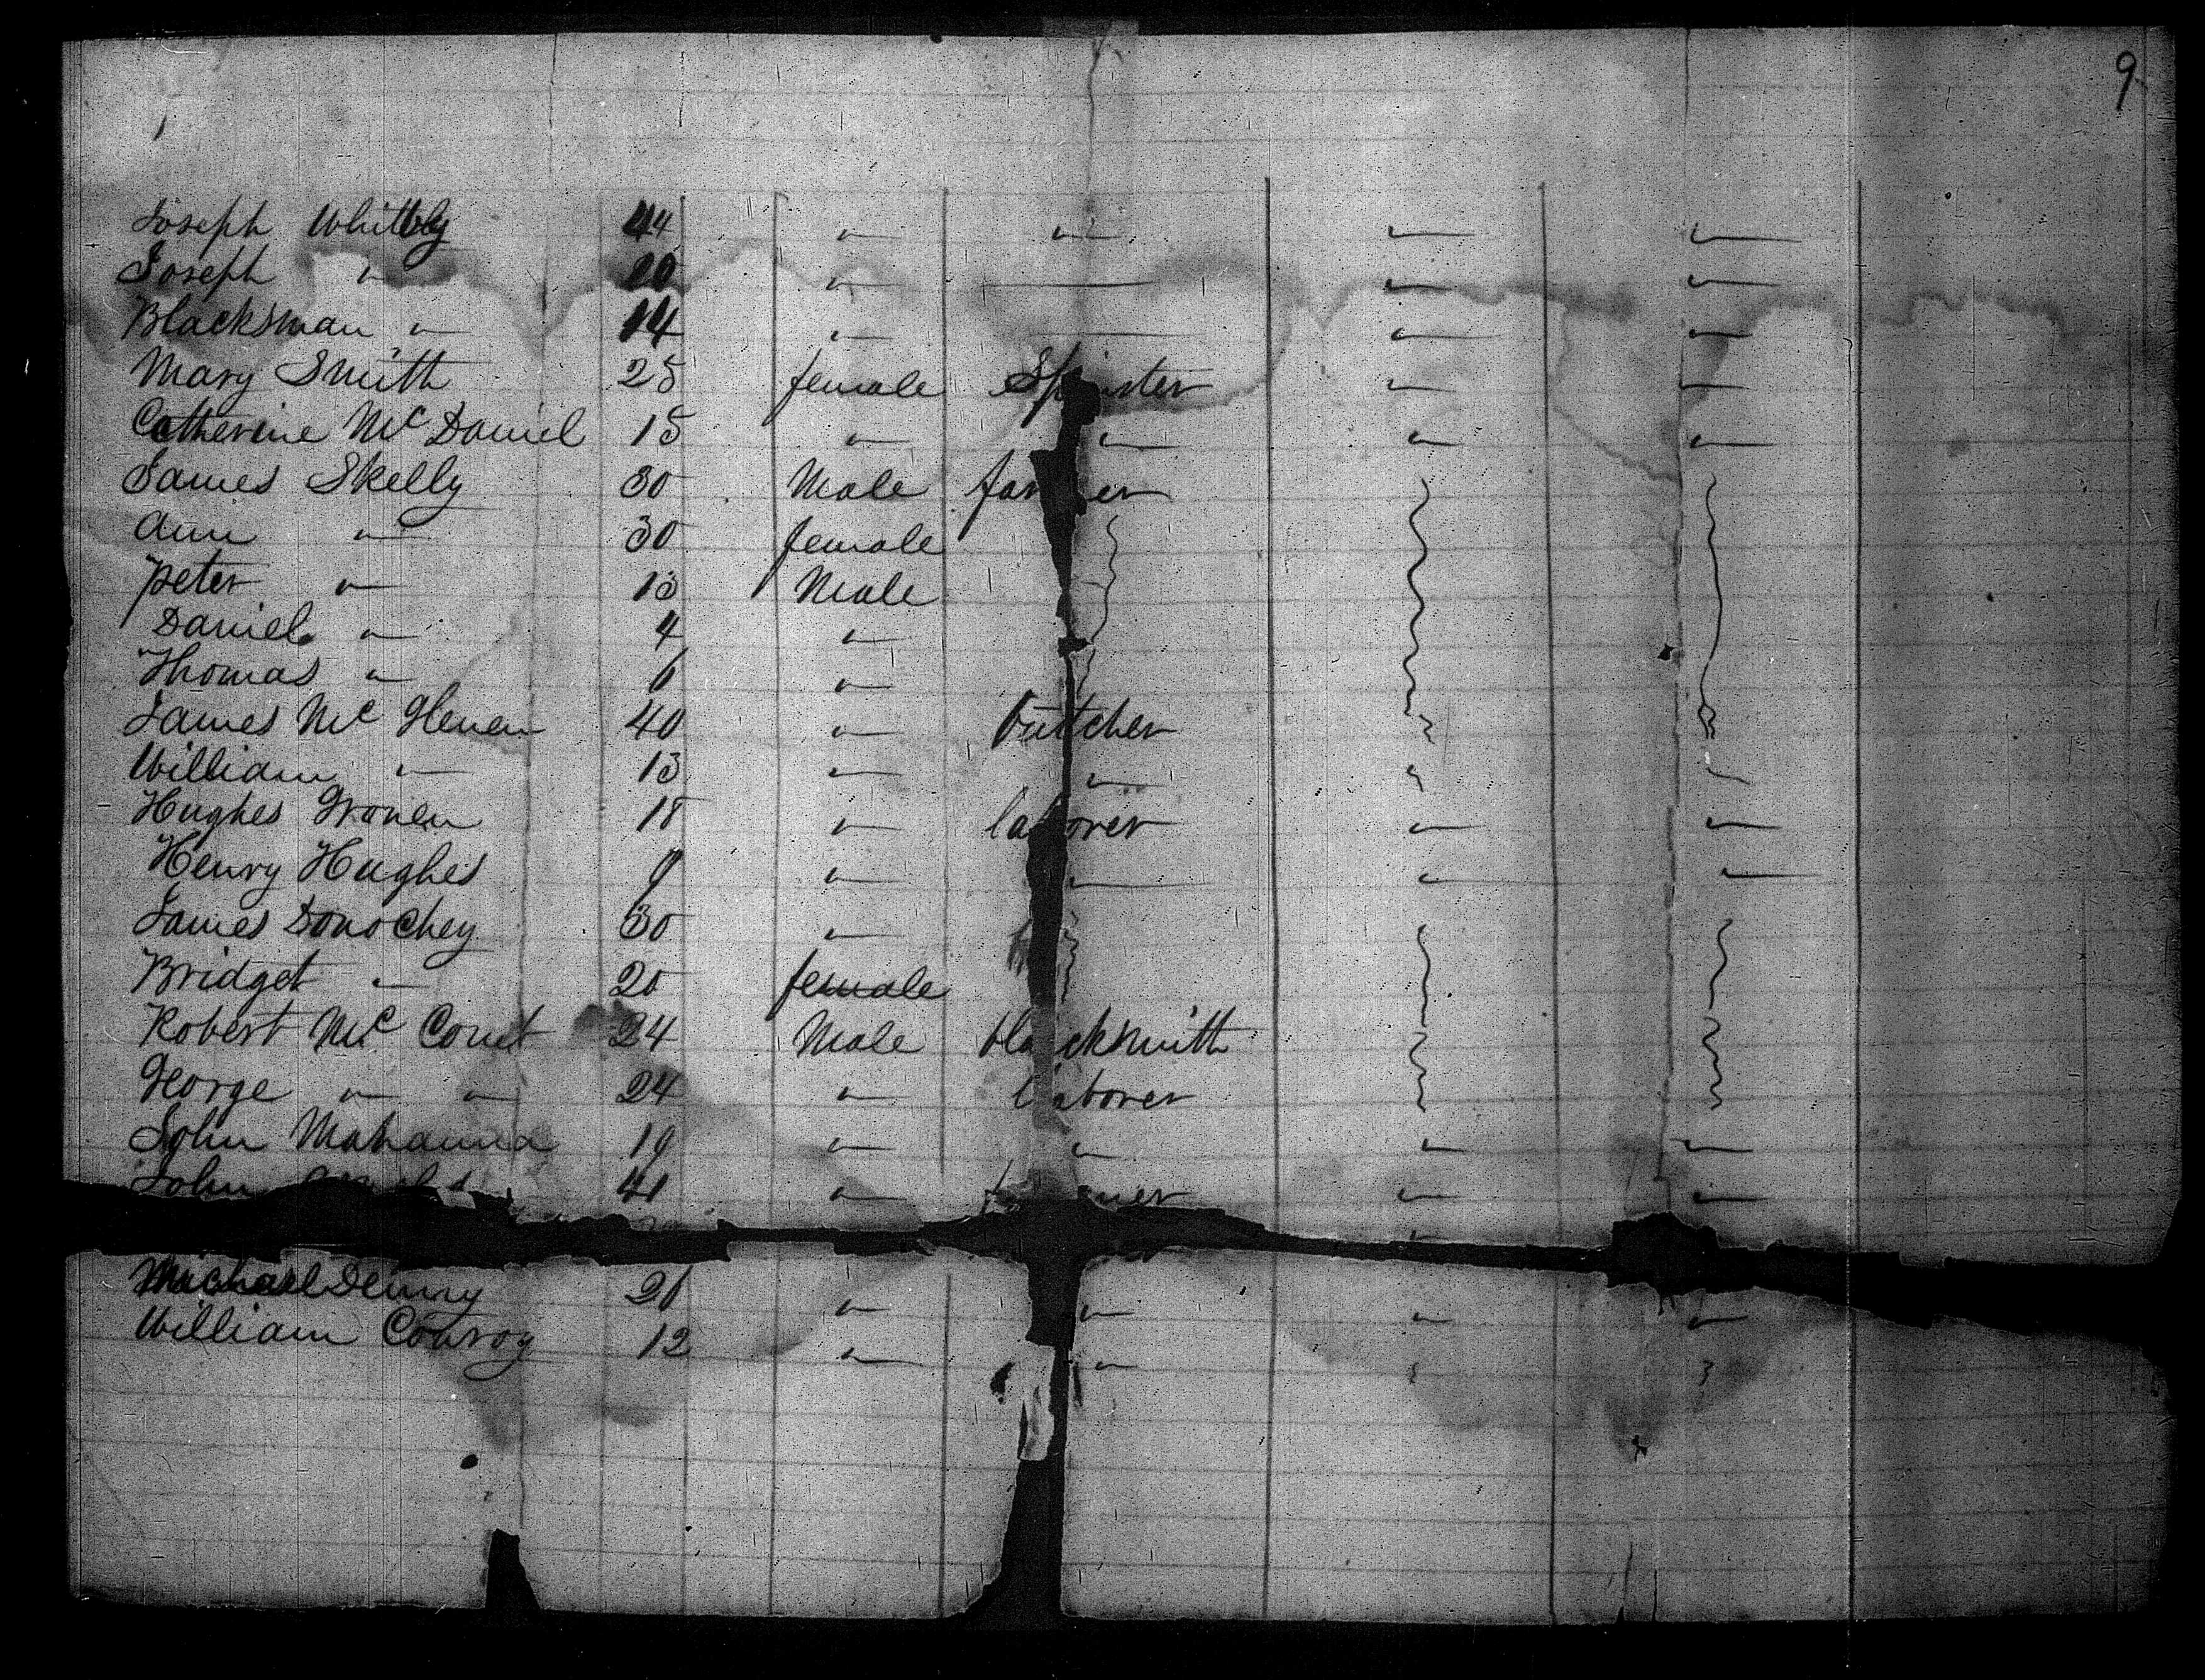 9
Joseph Whittely 44 " " " "
Joseph " 20 " — " "
Blacksman " 14 " — " "
Mary Smith 25 female Spinster " "
Catherine Mc Daniel 15 " " " "
James Skelly 30 Male farmer
Ann " 30 female
Peter " 13 Male
Daniel " 4 "
Thomas " 6 "
James Mc Glenen 40 " butcher
William " 13 " "
Hughes Gronen 18 " laborer " "
Henry Hughes 9 " " " "
James Donochey 30 "
Bridget " 20 female
Robert Mc Court 24 Male blacksmith
George " " 24 " laborer
John Mahanna 19 " " " "
John 41 " " "
Michael Denny 21 " " " "
William Conroy 12 " "